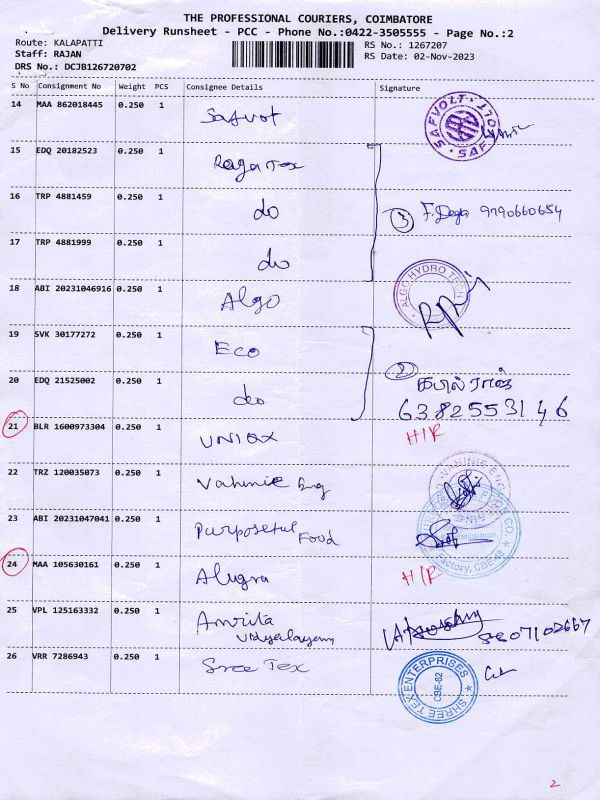 THE PROFESSIONAL COURIERS, COIMBATORE
Delivery Runsheet - PCC - Phone No.:0422-3505555 - Page No.:2
Route: KALAPATTI
Staff: RAJAN
DRS No.: DCJB126720702
RS No.: 1267207
RS Date: 02-Nov-2023
S No Consignment No Weight PCS Consignee Details Signature
14 MAA 862018445 0.250 1 Safvot SAFVOLT SAFVOLT
15 EDQ 20182523 0.250 1 Raga Tex
16 TRP 4881459 0.250 1 do 3 9790660654
17 TRP 4881999 0.250 1 do
18 ABI 20231046916 0.250 1 Algo ALGO HYDRO TECH
19 SVK 30177272 0.250 1 Eco
20 EDQ 21525002 0.250 1 do 2 6382553146
21 BLR 1600973304 0.250 1 UNIQX H/R
22 TRZ 120035073 0.250 1 Vahinie Eng
23 ABI 20231047041 0.250 1 Purposeful Food Factory, CBE-48
24 MAA 105630161 0.250 1 Alugra H/R
25 VPL 125163332 0.250 1 Amrita Vidyalayam
26 VRR 7286943 0.250 1 Sree Tex SHREE TEX ENTERPRISES CBE-62
2